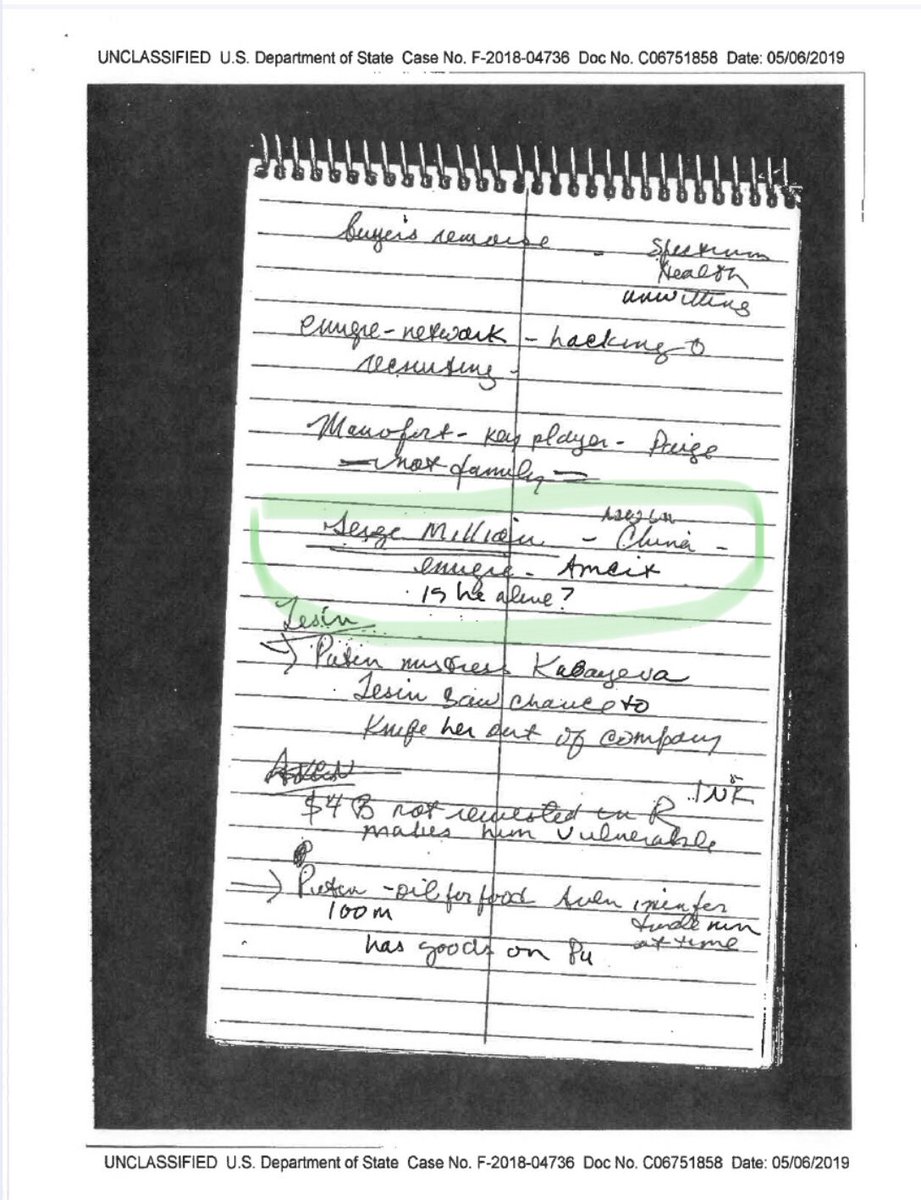 UNCLASSIFIED U.S. Department of State Case No. F-2018-04736 Doc No. C06751858 Date: 05/06/2019
buyer's remorse - Spectrum
Health
unwitting
emigre - network - hacking
recruiting -
Manafort - key player - Paige
- not family -
Serge Millian - China -
emigre - Amcit
is he alive?
Lesin
→ Putin mistress Kabayeva
Lesin saw chance to
knife her out of company
INK
$4 B not in R
makes him vulnerable
→ Putin - oil for food
100m at time
has goods on Pu
UNCLASSIFIED U.S. Department of State Case No. F-2018-04736 Doc No. C06751858 Date: 05/06/2019